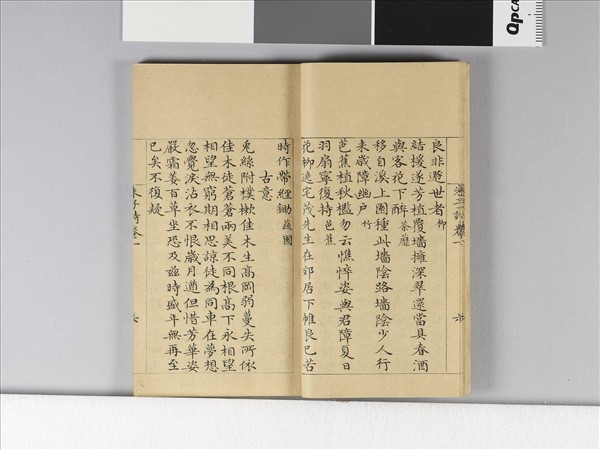 良非遯世者 柳
結援遂芳植覆墻擁深翠還當具春酒
與客花下醉 荼䕷
移自溪上園種此墻陰路墻陰少人行
来歲障幽戶 竹
芭蕉植秋檻勿云憔悴姿與君障夏日
羽扇寧復持 芭蕉
花柳遶宅茂先生在郊居下帷良已苦
時作帶經鋤 蔬圃
古意
兎絲附樸樕佳木生高岡弱蔓失所依
佳木徒蒼蒼兩美不同根高下永相望
相望無窮期相思諒徒為同車在夢想
忽覺淚沾衣不恨歲月遒但惜芳華姿
嚴霜萎百草坐恐及兹時盛年無再至
已矣不復疑
朱子詩卷一
QpCA